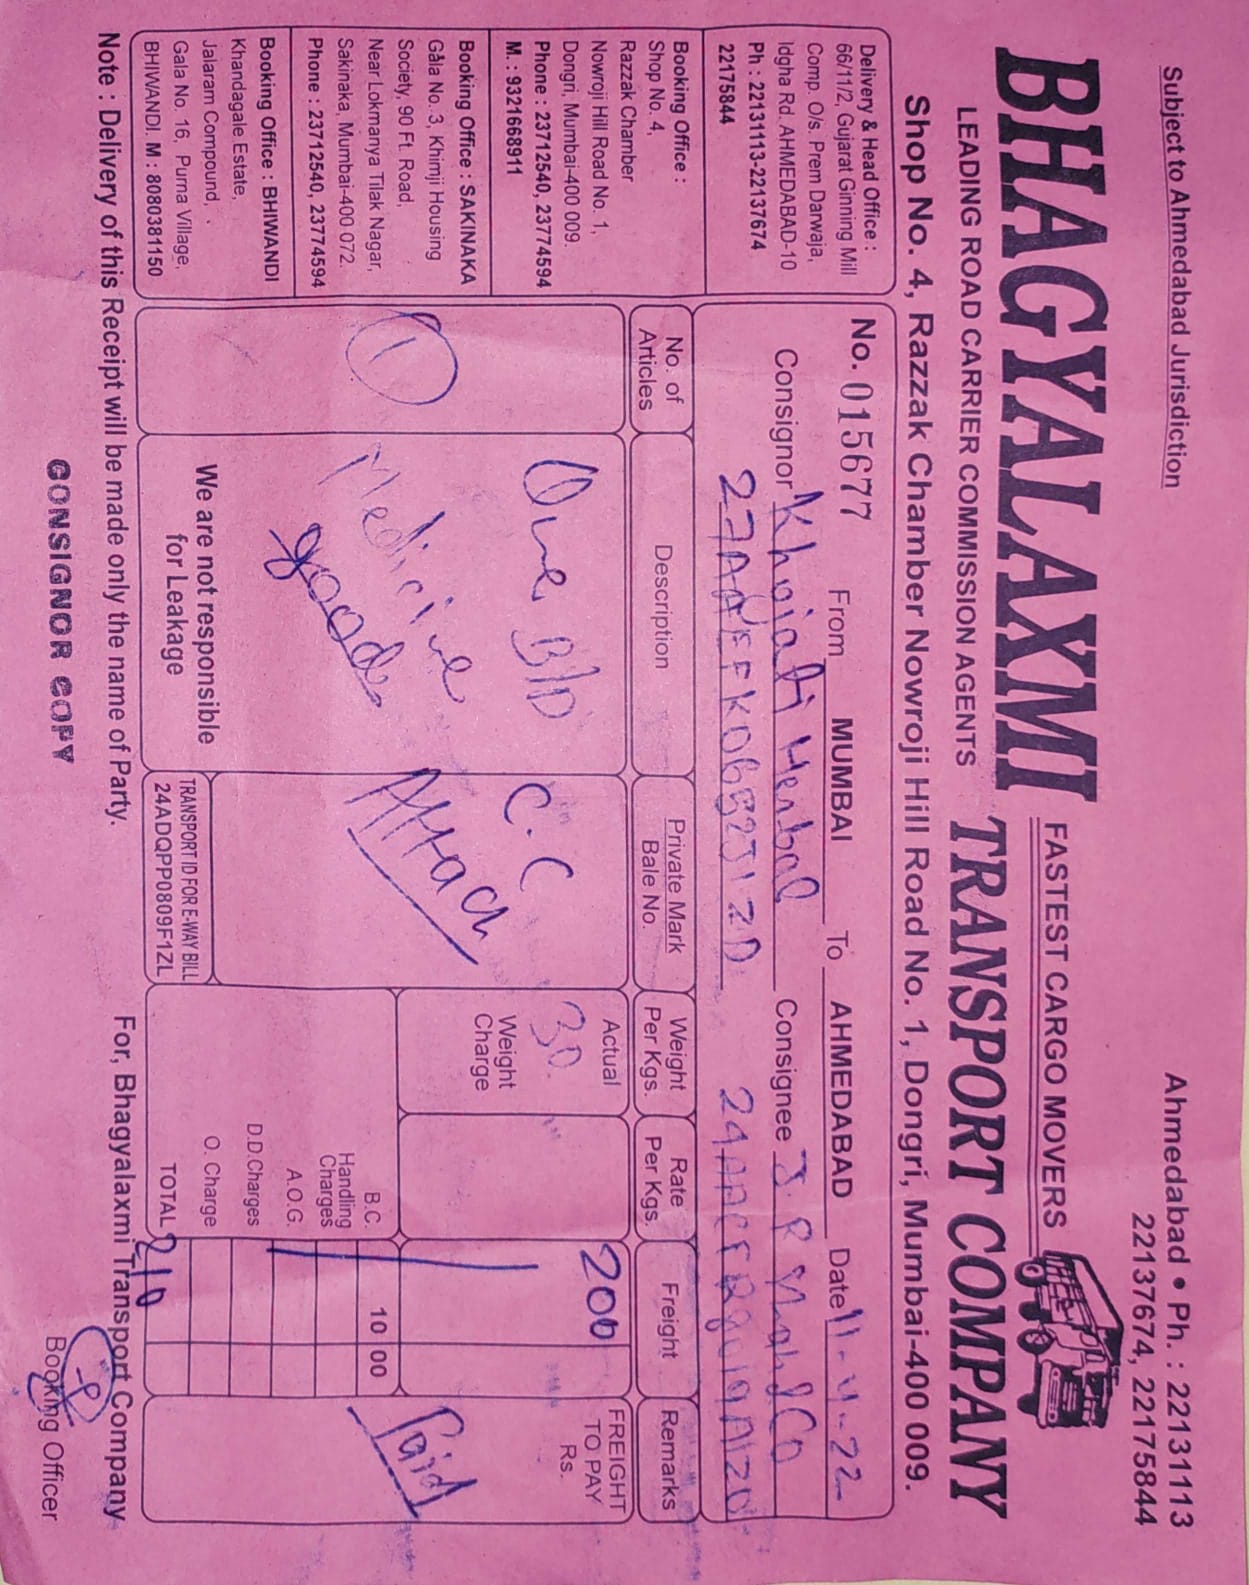 Subject to Ahmedabad Jurisdiction
Ahmedabad • Ph. : 22131113
22137674, 22175844
BHAGYALAXMI
FASTEST CARGO MOVERS
LEADING ROAD CARRIER COMMISSION AGENTS
TRANSPORT COMPANY
Shop No. 4, Razzak Chamber Nowroji Hill Road No. 1, Dongri, Mumbai-400 009.
Delivery & Head Office :
66/11/2, Gujarat Ginning Mill
Comp. O/s. Prem Darwaja,
Idgha Rd. AHMEDABAD-10
Ph : 22131113-22137674
22175844
Booking Office :
Shop No. 4,
Razzak Chamber
Nowroji Hill Road No. 1,
Dongri, Mumbai-400 009.
Phone : 23712540, 23774594
M. : 9321668911
Booking Office : SAKINAKA
Gala No. 3, Khimji Housing
Society, 90 Ft. Road,
Near Lokmanya Tilak Nagar,
Sakinaka, Mumbai-400 072.
Phone : 23712540, 23774594
Booking Office : BHIWANDI
Khandagale Estate,
Jalaram Compound,
Gala No. 16, Purna Village,
BHIWANDI. M : 8080381150
No. 015677 From MUMBAI To AHMEDABAD Date 11-4-22
Consignor Khojati Herbal Consignee J. R Shah & Co
No. of Articles
Description
Private Mark
Bale No.
Weight Per Kgs.
Rate Per Kgs.
Freight
Remarks
1
One B/D
Medicine
goods
C.C
Attach
Actual
30.
Weight Charge
200
FREIGHT TO PAY Rs.
Paid
B.C. 10 00
Handling Charges
A.O.G.
D.D.Charges
O. Charge
TOTAL 210
We are not responsible
for Leakage
TRANSPORT ID FOR E-WAY BILL
24ADQPP0809F1ZL
Note : Delivery of this Receipt will be made only the name of Party.
For, Bhagyalaxmi Transport Company
CONSIGNOR COPY
Booking Officer